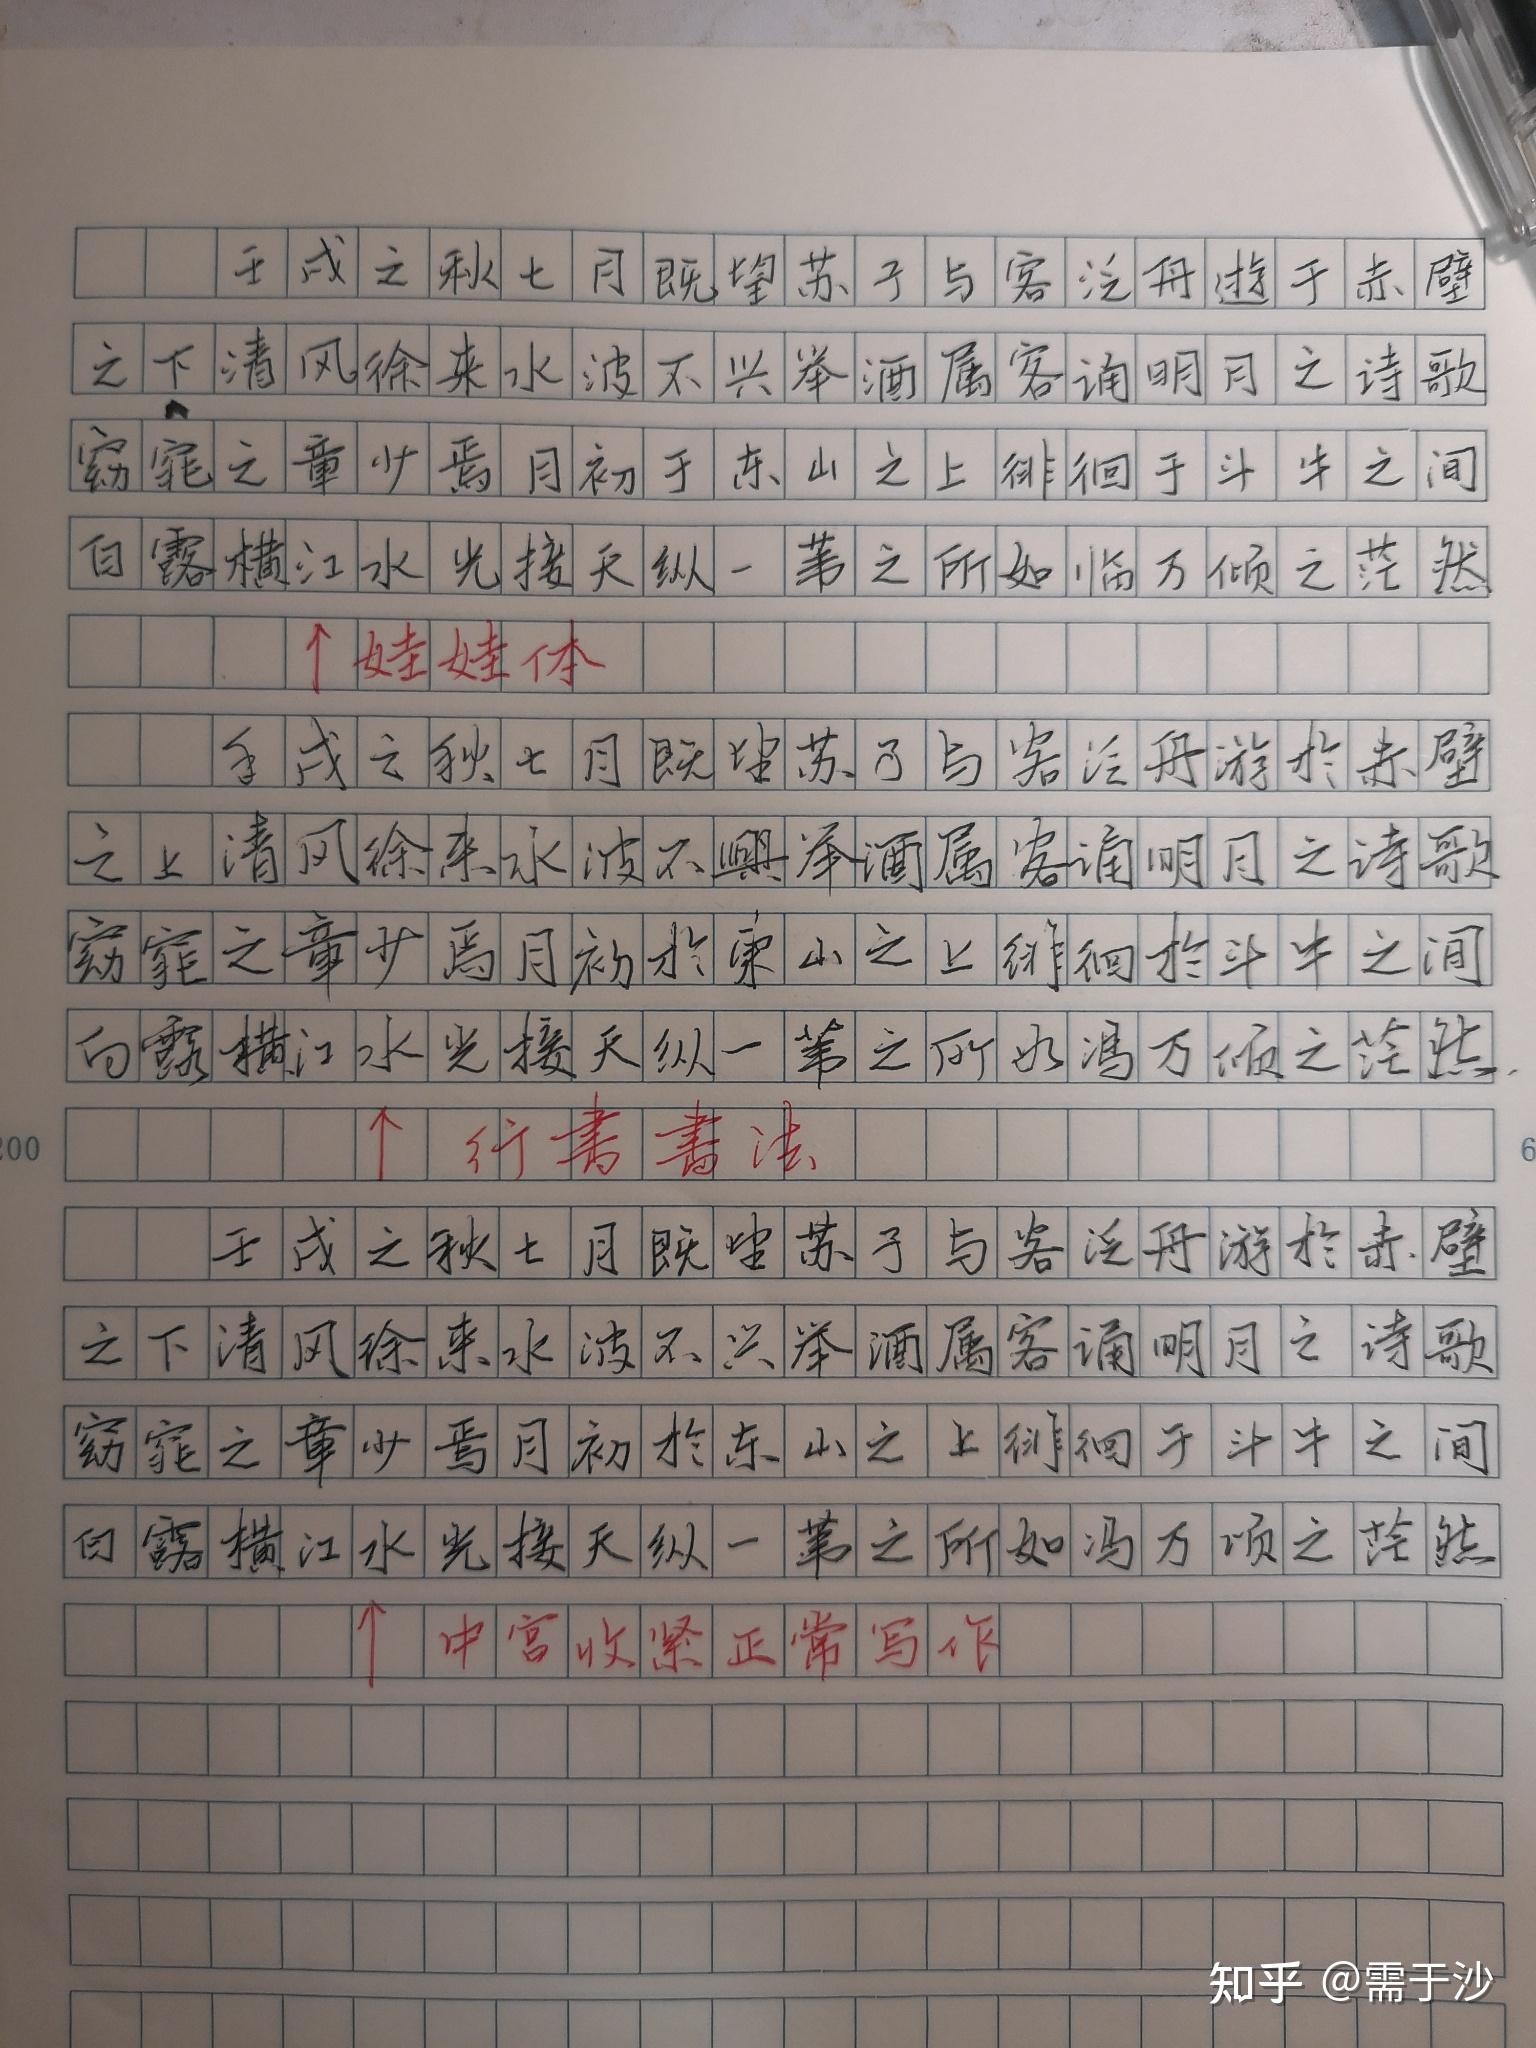 壬戌之秋七月既望苏子与客泛舟遊于赤壁
之下清风徐来水波不兴举酒属客诵明月之诗歌
窈窕之章少焉月初于东山之上徘徊于斗牛之间
白露横江水光接天纵一苇之所如临万倾之茫然
↑娃娃体
壬戌之秋七月既望苏子与客泛舟游於赤壁
之上清风徐来水波不興举酒属客诵明月之诗歌
窈窕之章少焉月初於東山之上徘徊於斗牛之间
200
白露横江水光接天纵一苇之所如冯万倾之茫然
↑行書書法
6
壬戌之秋七月既望苏子与客泛舟游於赤壁
之下清风徐来水波不兴举酒属客诵明月之诗歌
窈窕之章少焉月初於东山之上徘徊于斗牛之间
白露横江水光接天纵一苇之所如冯万顷之茫然
↑中宫收紧正常写作
知乎 @需于沙